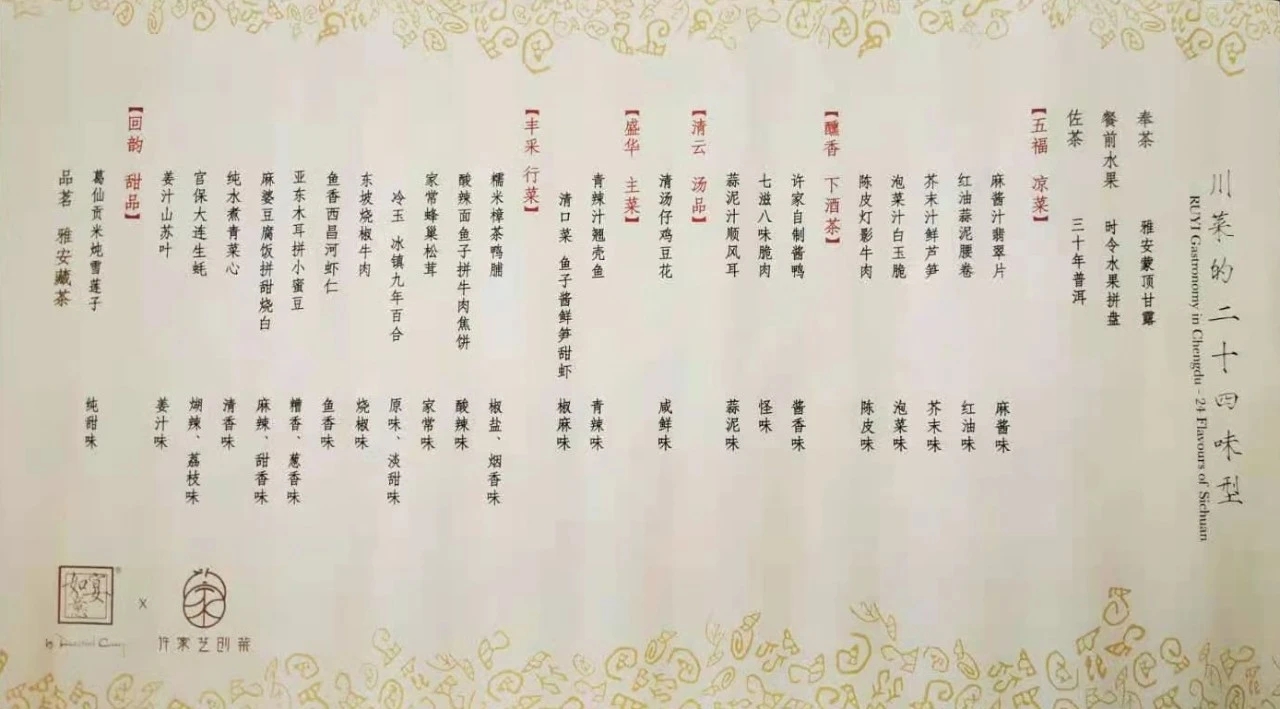 川菜的二十四味型
RUYI Gastronomy in Chengdu - 24 Flavours of Sichuan
奉茶 雅安蒙顶甘露
餐前水果 时令水果拼盘
佐茶 三十年普洱
【五福 凉菜】
麻酱汁翡翠片 麻酱味
红油蒜泥腰卷 红油味
芥末汁鲜芦笋 芥末味
泡菜汁白玉脆 泡菜味
陈皮灯影牛肉 陈皮味
【醺香 下酒菜】
许家自制酱鸭 酱香味
七滋八味脆肉 怪味
蒜泥汁顺风耳 蒜泥味
【清云 汤品】
清汤仔鸡豆花 咸鲜味
【盛华 主菜】
青辣汁翘壳鱼 青辣味
清口菜 鱼子酱鲜笋甜虾 椒麻味
【丰采 行菜】
糯米樟茶鸭脯 椒盐、烟香味
酸辣面鱼子拼牛肉焦饼 酸辣味
家常蜂巢松茸 家常味
冷玉 冰镇九年百合 原味、淡甜味
东坡烧椒牛肉 烧椒味
鱼香西昌河虾仁 鱼香味
亚东木耳拼小蜜豆 糟香、葱香味
麻婆豆腐饭拼甜烧白 麻辣、甜香味
纯水煮青菜心 清香味
宫保大连生蚝 煳辣、荔枝味
姜汁山苏叶 姜汁味
【回韵 甜品】
葛仙贡米炖雪莲子 纯甜味
品茗 雅安藏茶
如意宴
x
许家艺创菜